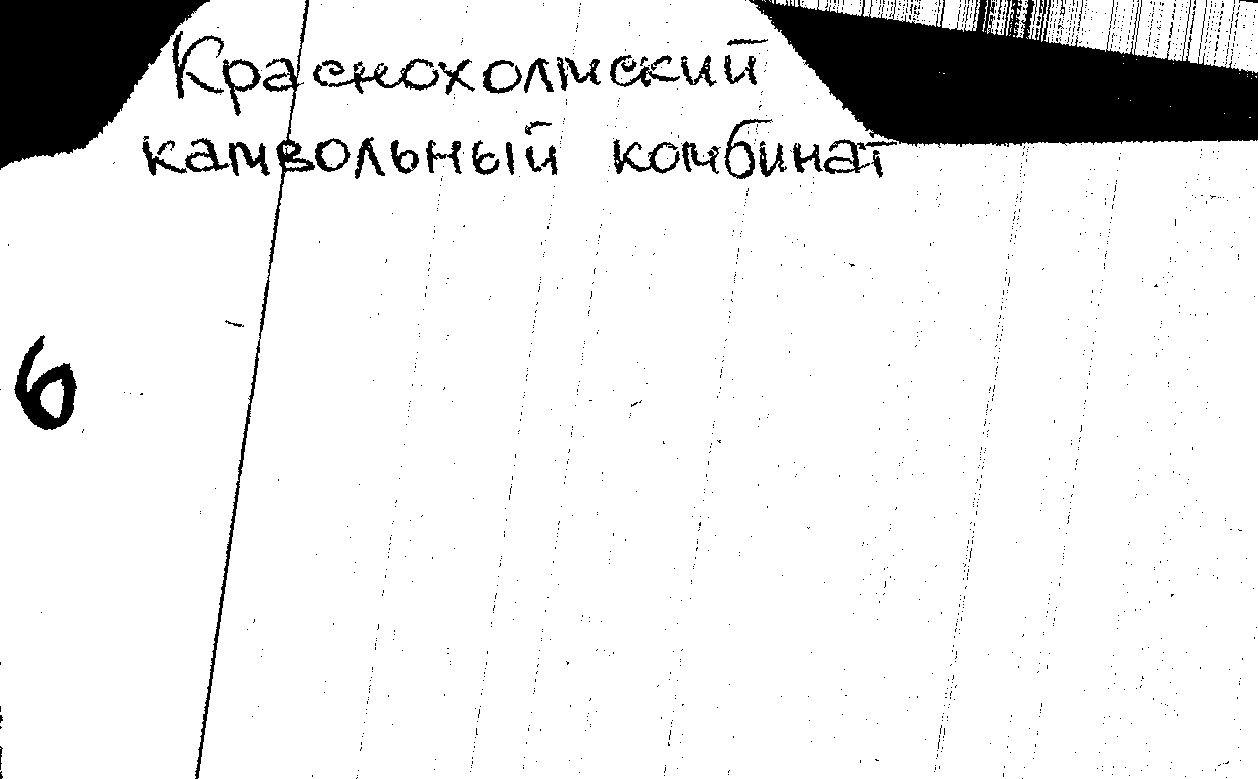 Краснохолмский
камвольный комбинат
6